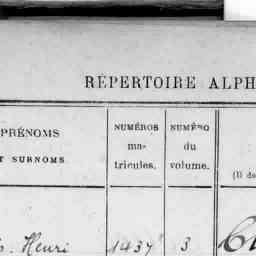 RÉPERTOIRE ALPH
PRÉNOMS
T SURNOMS
NUMÉROS
ma-
tricules.
NUMÉRO
du
volume.
(Il de
Henri 1437 3